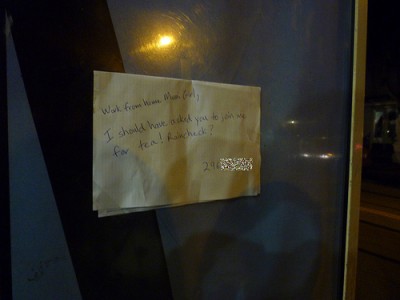 Work from home Girl,
I should have asked you to join me
for tea! Raincheck?